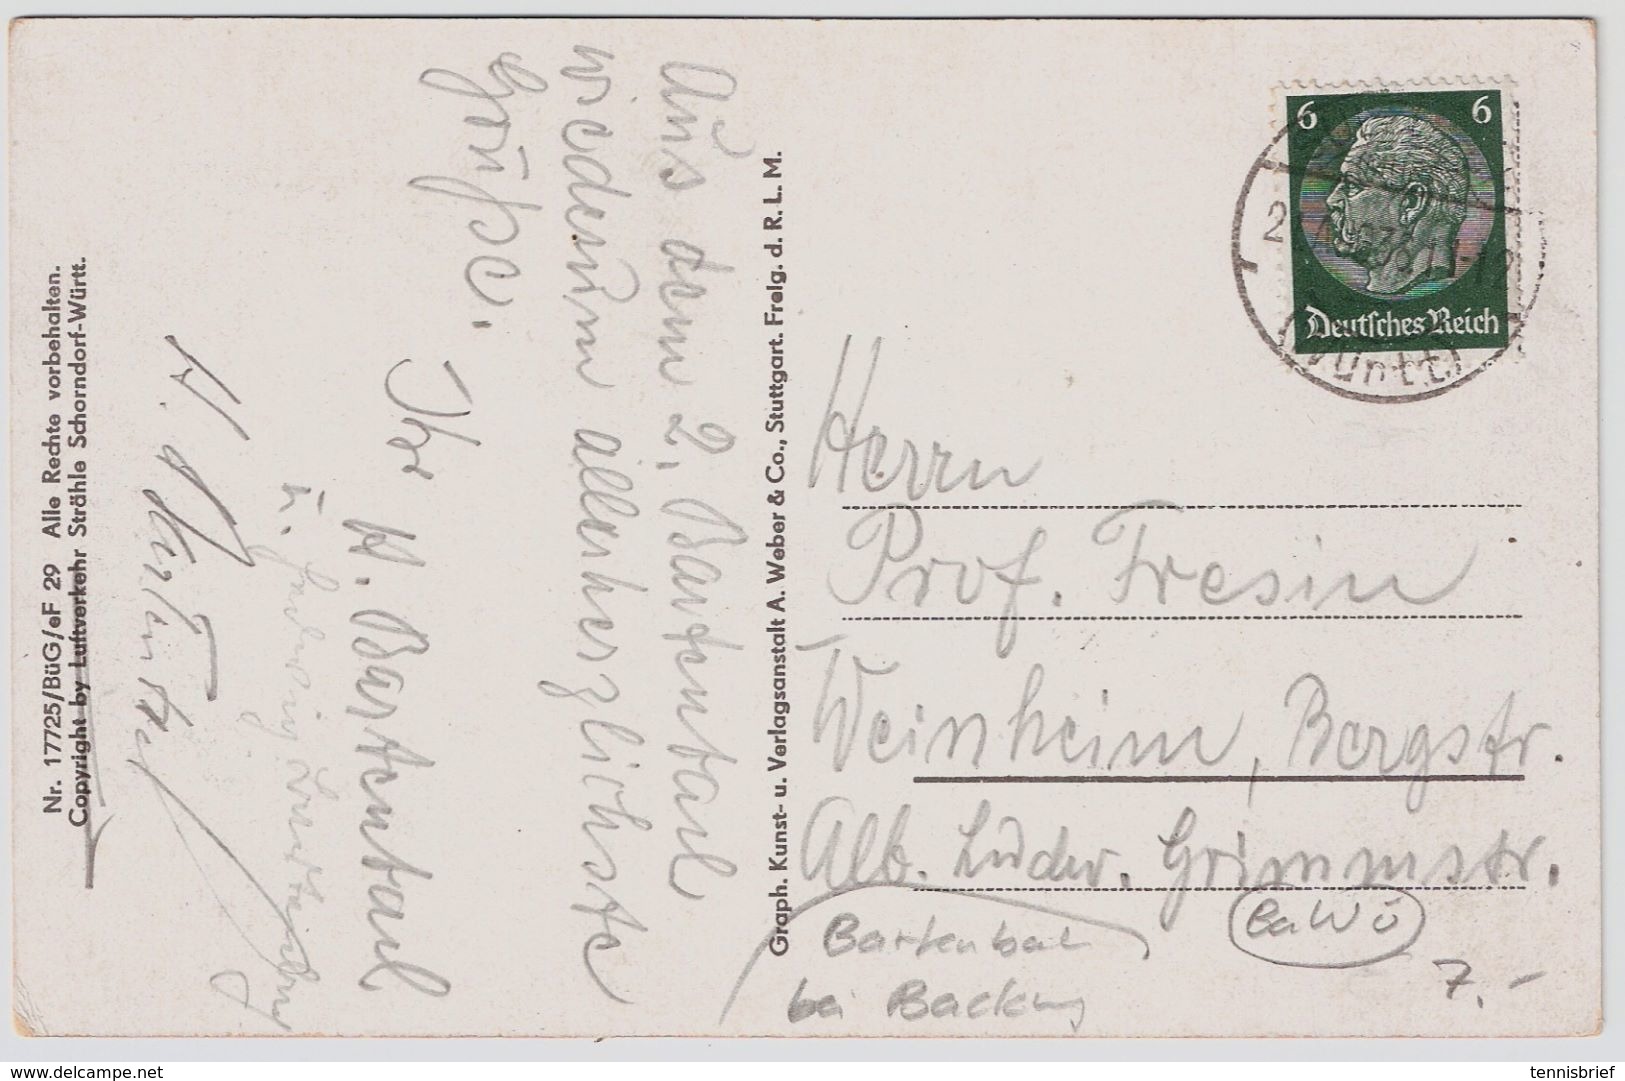 Nr. 17725/BüG/eF 29 Alle Rechte vorbehalten.
Copyright by Luftverkehr Strähle Schorndorf-Württ.
Aus dem 2. Bartental
wiederum allerherzlichste
Grüße.
Ihr
H. Bartental
u.
Graph. Kunst- u. Verlagsanstalt A. Weber & Co., Stuttgart. Freig. d. R. L. M.
6 6
Deutsches Reich
(Württ)
Herrn
Prof. Fresin
Weinheim, Bergstr.
Alb. Ludw. Grimmstr.
BaWü
Bartenbach
bei Backnang
7.-
www.delcampe.net
tennisbrief